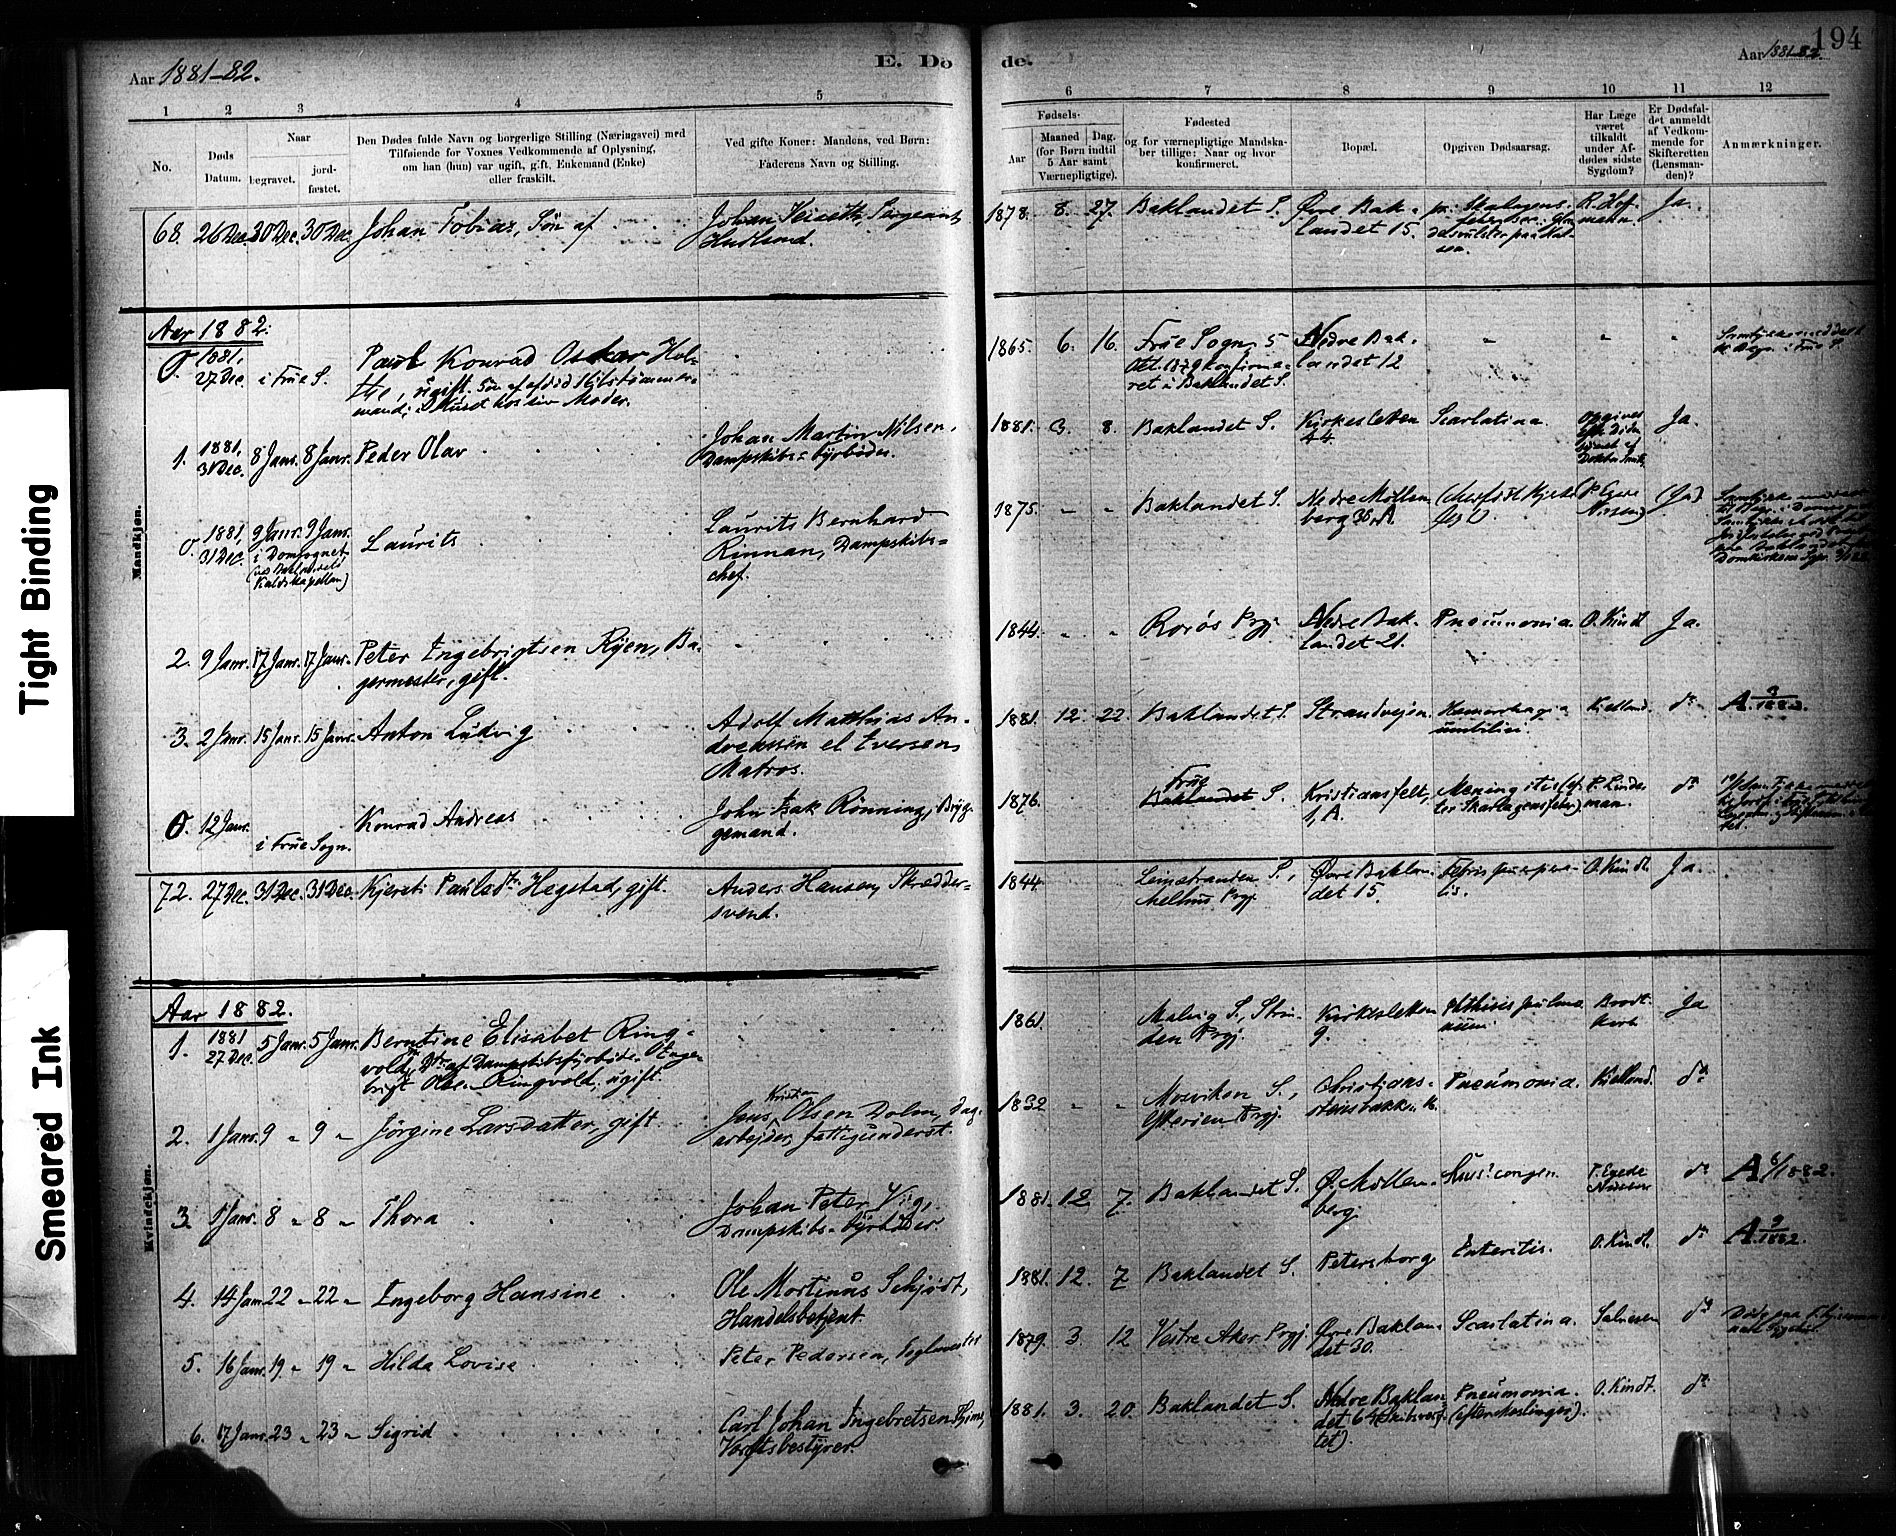 Tight Binding
Smeared Ink
Aar 1881-82.
E. Dø
de.
194
Aar 1881-82.
1 2 3 4 5 6 7 8 9 10 11 12
No.
Døds Datum.
Naar
begravet.
jord-
fæstet.
Den Dødes fulde Navn og borgerlige Stilling (Næringsvei) med
Tilføiende for Voxnes Vedkommende af Oplysning,
om han (hun) var ugift, gift, Enkemand (Enke)
eller fraskilt.
Ved gifte Koner: Mandens, ved Børn:
Faderens Navn og Stilling.
Fødsels-
Aar
Maaned Dag.
(for Børn indtil
5 Aar samt
Værnepligtige).
Fødested
og for værnepligtige Mandska-
ber tillige: Naar og hvor
konfirmeret.
Bopæl.
Opgiven Dødsaarsag.
Har Læge
været
tilkaldt
under Af-
dødes sidste
Sygdom?
Er Dødsfal-
det anmeldt
af Vedkom-
mende for
Skifteretten
(Lensman-
den)?
Anmærkninger.
Mandkjøn.
68. 26 Dec. 30 Dec. 30 Dec. Johan Tobias, Søn af
Johan Sergeant,
1878. 8. 27. Baklandet S. Øvre Bak-
landet 15.
Ja.
Aar 1882.
0. 1881, 27 Dec. i Frue S.
Paul Konrad Oskar Hol-
the, ugift, Søn af afdød Skibstømmer-
mand; i Huset hos sin Moder.
1865. 6. 16. Frue Sogn. 5
Okt. 1879 konfirme-
ret i Baklandet S.
Nedre Bak-
landet 12
1. 1881, 31 Dec. 8 Janr. 8 Janr. Peder Olav
Johan Martin Nilsen,
Dampskibs-Fyrbøder.
1881. 3. 8. Baklandet S. Kirkesletten
44.
Scarlatina. Ja.
0. 1881, 31 Dec. 9 Janr. 9 Janr. i Domsognet Laurits
Laurits Bernhard
Rinnan, Dampskibs-
chef.
1875. - - Baklandet S. Nedre Møllen-
berg 36, A. (Ja)
2. 9 Janr. 17 Janr. 17 Janr. Peter Ingebrigtsen Ryen, Ba-
germester, gift.
1844. - - Rørøs Prgj. Nedre Bak-
landet 21. Pneumonia. O. Kindt Ja.
3. 2 Janr. 15 Janr. 15 Janr. Anton Ludvig
Adolf Matthias An-
dreassen el Iversen,
Matros.
1881. 12. 22. Baklandet S. Strandveien. Hæmorrhagia
umbilici. Kielland. do A 3/1882.
0. 12 Janr. i Frue Sogn. Konrad Andreas
John Isak Rønning, Bryg-
gemand.
1876. Frue
Baklandet S. Kristiansfelt,
1, A. Meningitis (ef-
ter Skarlagensfeber) P. Linde-
man. do
72. 27 Dec. 31 Dec. 31 Dec. Kjersti Paulsdtr. Hegstad, gift.
Anders Hansen, Skrædder-
svend.
1844 Leinstranden S.,
Melhus Prgj. Øvre Baklan-
det 15. Febris puerpera-
lis. O. Kindt. Ja.
Kvindekjøn.
Aar 1882.
1. 1881 27 Dec. 5 Janr. 5 Janr. Berntine Elisabet Ring-
vold, Dtr. af Dampskibsfyrbøder Inge-
brigt Olsen Ringvold; ugift.
1861. Malvig S., Strin-
den Prgj. Kirkesletten
9. Phthisis pulmo-
num. Ja
2. 1 Janr. 9 - 9 - Jørgine Larsdatter, gift.
Kristian
Jens Olsen Dolm, Dag-
arbejder, fattigunderst.
1832 - - Mosviken S.,
Ytterøen Prgj. Christians-
stensbakken Pneumonia. Kielland. do
3. 1 Janr. 8 - 8 - Thora
Johan Peter Viig,
Dampskibs-Fyrbøder
1881. 12 7. Baklandet S. Ø. Møllen-
berg. P. Egede
Nissen do A 6/1882.
4. 14 Janr. 22 - 22 - Ingeborg Hansine
Ole Mortinus Schjødt,
Handelsbetjent.
1881. 12. 7 Baklandet S. Petersborg Enteritis. O. Kindt. do A 9/1882.
5. 16 Janr. 19 - 19 - Hilda Lovise
Peter Pedersen,
1879. 3 12 Vestre Aker Prgj. Øvre Baklan-
det 30. Scarlatina. do
6. 17 Janr. 23 - 23 - Sigrid
Carl Johan Ingebretsen
1881. 3. 20. Baklandet S. Nedre Baklan-
det 64 Pneumonia.
(efter Mæslinger). O. Kindt. do